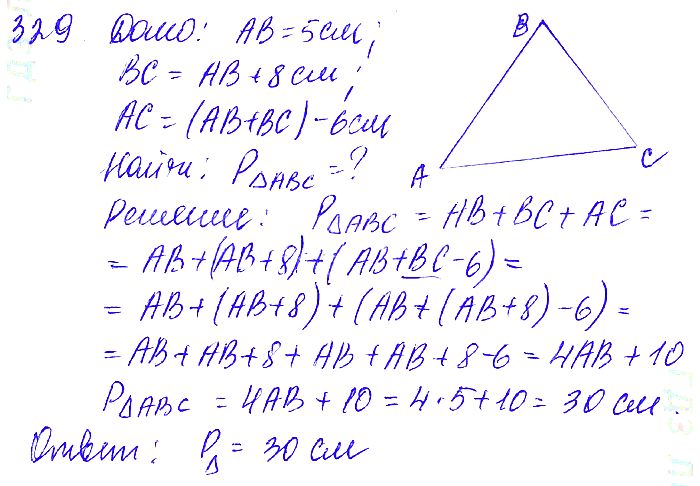 329 Дано: AB = 5 см;
BC = AB + 8 см;
AC = (AB+BC) - 6 см
Найти: P△ABC = ?
B
A
C
Решение: P△ABC = AB + BC + AC =
= AB + (AB+8) + (AB+BC-6) =
= AB + (AB+8) + (AB + (AB+8) - 6) =
= AB + AB + 8 + AB + AB + 8 - 6 = 4AB + 10
P△ABC = 4AB + 10 = 4·5 + 10 = 30 см.
Ответ: P△ = 30 см